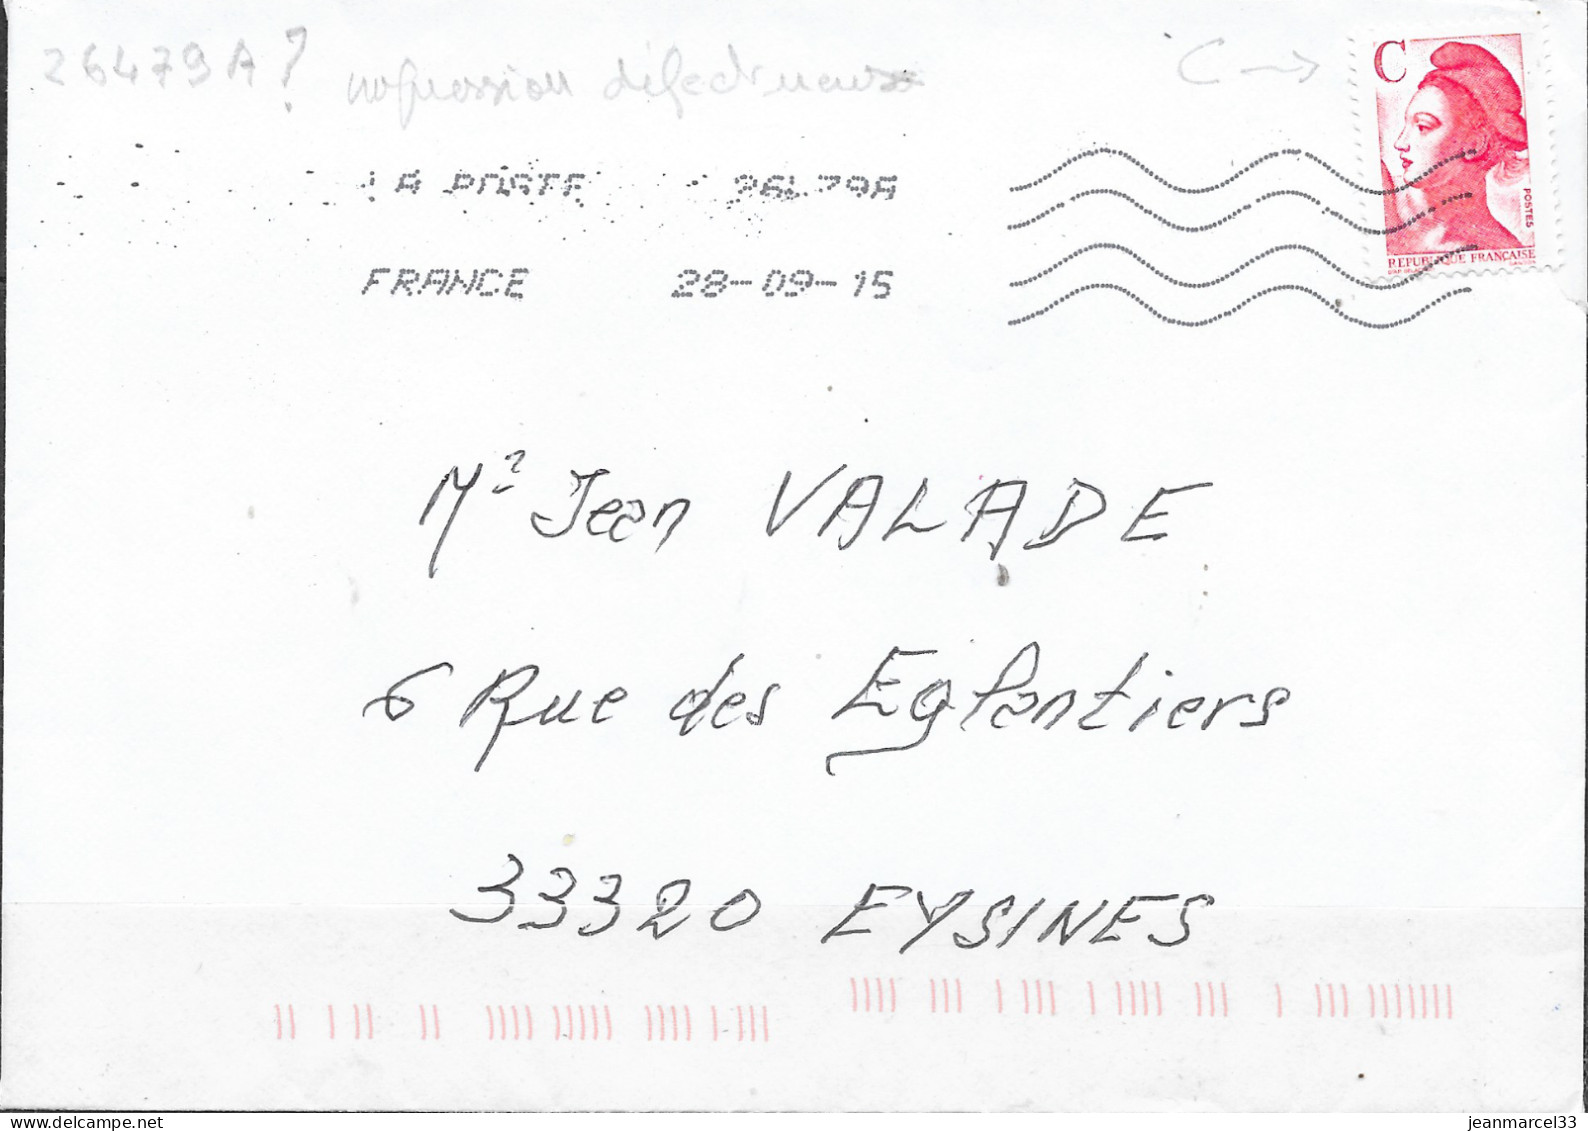 26479A? impression défectueuse C →
LA POSTE 26479A
FRANCE 28-09-15
C
POSTES
REPUBLIQUE FRANÇAISE
Mr Jean VALADE
6 Rue des Eglantiers
33320 EYSINES
jeanmarcel33